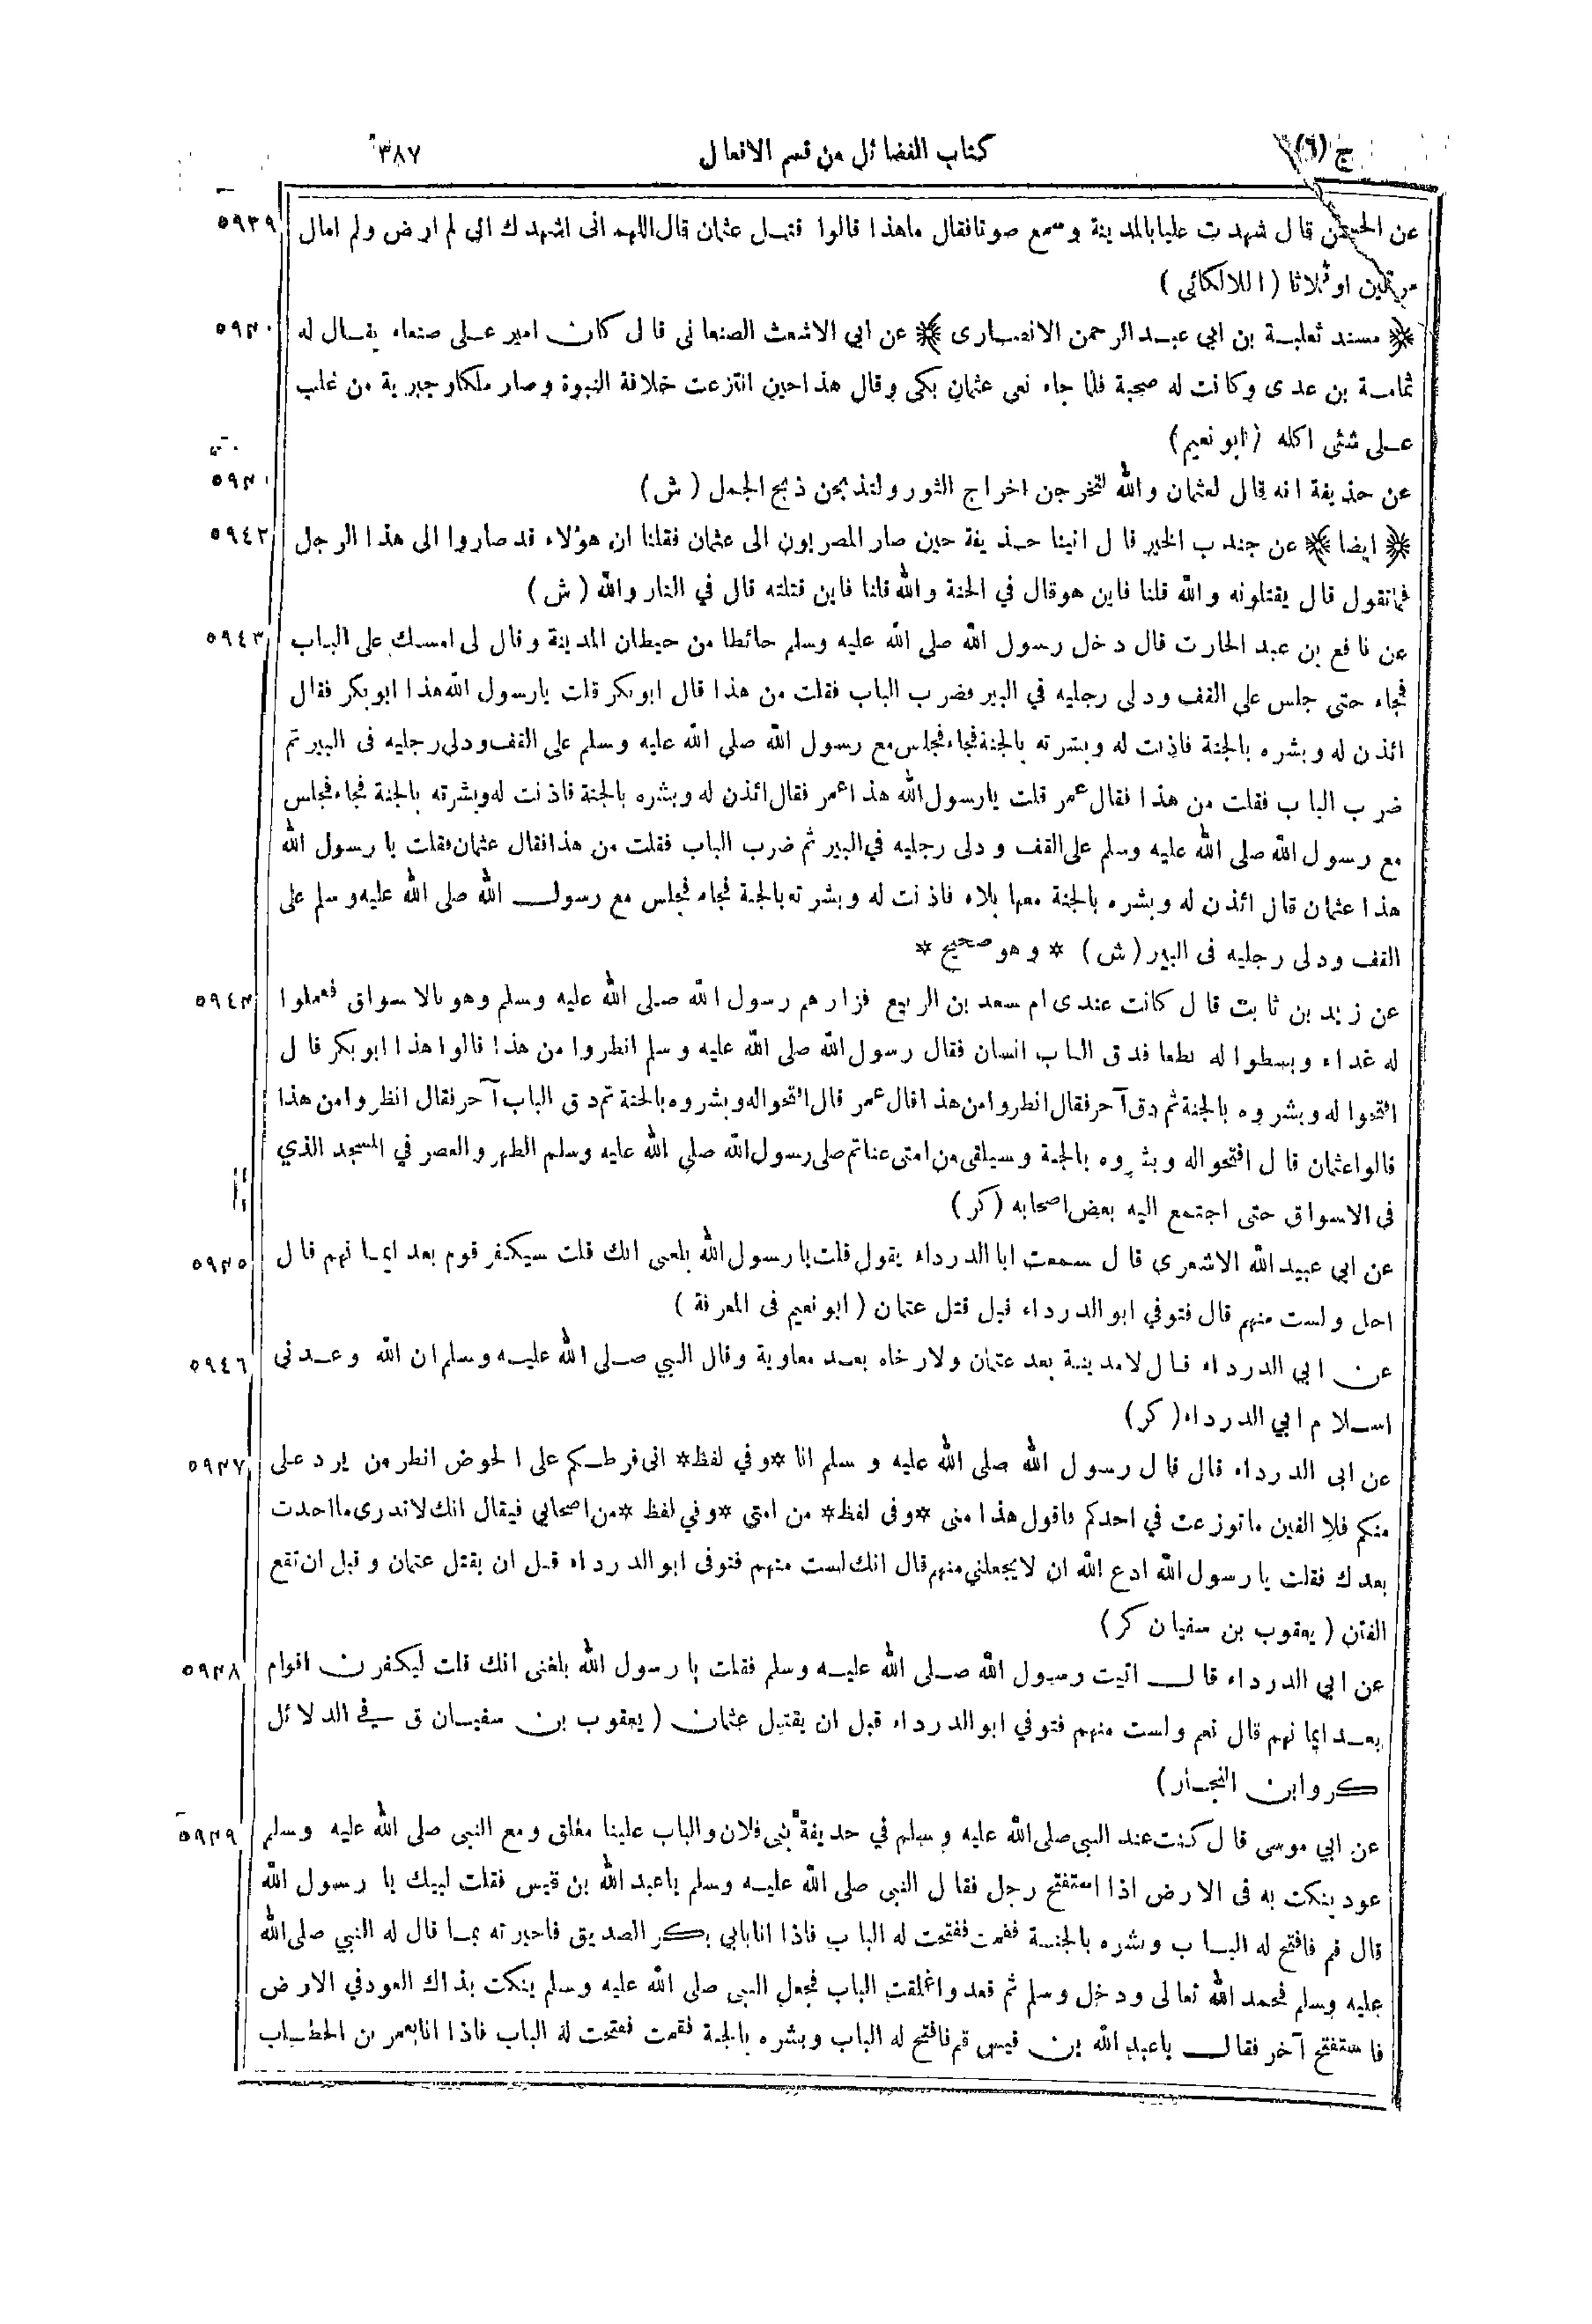 ج (٦) كتاب الفضائل من قسم الافعال ٣٨٧
عن الحسن قال شهدت عليا بالمدينة وسمع صوتا فقال ما هذا قالوا قتل عثمان قال اللهم انى اشهدك انى لم ارض ولم امال ٥٩٣٩
مرتين او ثلاثا (اللالكائى)
مسند ثعلبة بن ابي عبد الرحمن الانصارى عن ابي الاشعث الصنعانى قال كان امير على صنعاء يقال له ٥٩٤٠
ثمامة بن عدى وكانت له صحبة فلما جاء نعى عثمان بكى وقال هذا حين انتزعت خلافة النبوة وصار ملكا وجبرية من غلب
على شئى اكله (ابو نعيم)
عن حذيفة انه قال لعثمان والله لتخرجن اخراج الثور ولتذبحن ذبح الجمل (ش) ٥٩٤١
ايضا عن جندب الخير قال اتينا حذيفة حين صار المصريون الى عثمان فقلنا ان هؤلاء قد صاروا الى هذا الرجل ٥٩٤٢
فما تقول قال يقتلونه والله قلنا فاين هو قال في الجنة والله قلنا فاين قتلته قال في النار والله (ش)
عن نافع بن عبد الحارث قال دخل رسول الله صلى الله عليه وسلم حائطا من حيطان المدينة وقال لى امسك على الباب ٥٩٤٣
فجاء حتى جلس على القف ودلى رجليه في البير فضرب الباب فقلت من هذا قال ابو بكر قلت يا رسول الله هذا ابو بكر فقال
ائذن له وبشره بالجنة فاذنت له وبشرته بالجنة فجاء فجلس مع رسول الله صلى الله عليه وسلم على القف ودلى رجليه فى البير ثم
ضرب الباب فقلت من هذا فقال عمر قلت يا رسول الله هذا عمر فقال ائذن له وبشره بالجنة فاذنت له وبشرته بالجنة فجاء فجلس
مع رسول الله صلى الله عليه وسلم على القف ودلى رجليه في البير ثم ضرب الباب فقلت من هذا فقال عثمان فقلت يا رسول الله
هذا عثمان قال ائذن له وبشره بالجنة معها بلاء فاذنت له وبشرته بالجنة فجاء فجلس مع رسول الله صلى الله عليه وسلم على
القف ودلى رجليه فى البير (ش) * وهو صحيح *
عن زيد بن ثابت قال كانت عندى ام سعد بن الربيع فزارهم رسول الله صلى الله عليه وسلم وهو بالاسواق فعملوا ٥٩٤٤
له غداء وبسطوا له نطعا فدق الباب انسان فقال رسول الله صلى الله عليه وسلم انظروا من هذا قالوا هذا ابو بكر قال
افتحوا له وبشروه بالجنة ثم دق آخر فقال انظروا من هذا قال عمر قال افتحوا له وبشروه بالجنة ثم دق الباب آخر فقال انظروا من هذا
قالوا عثمان قال افتحوا له وبشروه بالجنة وسيلقى من امتى عنا ثم صلى رسول الله صلى الله عليه وسلم الظهر والعصر في المسجد الذي
فى الاسواق حتى اجتمع اليه بعض اصحابه (كر)
عن ابي عبيد الله الاشعري قال سمعت ابا الدرداء يقول قلت يا رسول الله بلغنى انك قلت سيكفر قوم بعد ايمانهم قال ٥٩٤٥
اجل ولست منهم قال فتوفي ابو الدرداء قبل قتل عثمان (ابو نعيم فى المعرفة)
عن ابي الدرداء قال لا مدينة بعد عثمان ولا رخاء بعد معاوية وقال النبي صلى الله عليه وسلم ان الله وعدنى ٥٩٤٦
اسلام ابي الدرداء (كر)
عن ابى الدرداء قال قال رسول الله صلى الله عليه وسلم انا *وفي لفظ* انى فرطكم على الحوض انظر من يرد على ٥٩٤٧
منكم فلا الفين ما نوزعت في احدكم فاقول هذا منى *وفى لفظ* من امتى *وفي لفظ* من اصحابي فيقال انك لا تدرى ما احدث
بعدك فقلت يا رسول الله ادع الله ان لا يجعلني منهم قال انك لست منهم فتوفى ابو الدرداء قبل ان يقتل عثمان وقبل ان تقع
الفتن (يعقوب بن سفيان كر)
عن ابي الدرداء قال اتيت رسول الله صلى الله عليه وسلم فقلت يا رسول الله بلغنى انك قلت ليكفرن اقوام ٥٩٤٨
بعد ايمانهم قال نعم ولست منهم فتوفي ابو الدرداء قبل ان يقتل عثمان (يعقوب بن سفيان ق في الدلائل
كر وابن النجار)
عن ابي موسى قال كنت عند النبى صلى الله عليه وسلم في حديقة بنى فلان والباب علينا مغلق ومع النبى صلى الله عليه وسلم ٥٩٤٩
عود ينكت به فى الارض اذا استفتح رجل فقال النبى صلى الله عليه وسلم يا عبد الله بن قيس فقلت لبيك يا رسول الله
قال قم فافتح له الباب وبشره بالجنة فقمت ففتحت له الباب فاذا انا بابي بكر الصديق فاخبرته بما قال له النبي صلى الله
عليه وسلم فحمد الله تعالى ودخل وسلم ثم قعد واغلقت الباب فجعل النبى صلى الله عليه وسلم ينكت بذاك العود في الارض
فاستفتح آخر فقال يا عبد الله بن قيس قم فافتح له الباب وبشره بالجنة فقمت ففتحت له الباب فاذا انا بعمر بن الخطاب